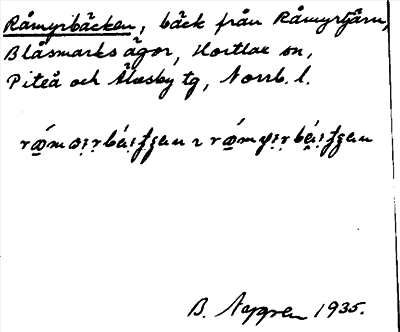 Råmyrbäcken, bäck från Råmyrtjärn,
Blåsmarks ägor, Hortlax sn,
Piteå och Älvsby tg, Norrb. l.
B. Nygren 1935.